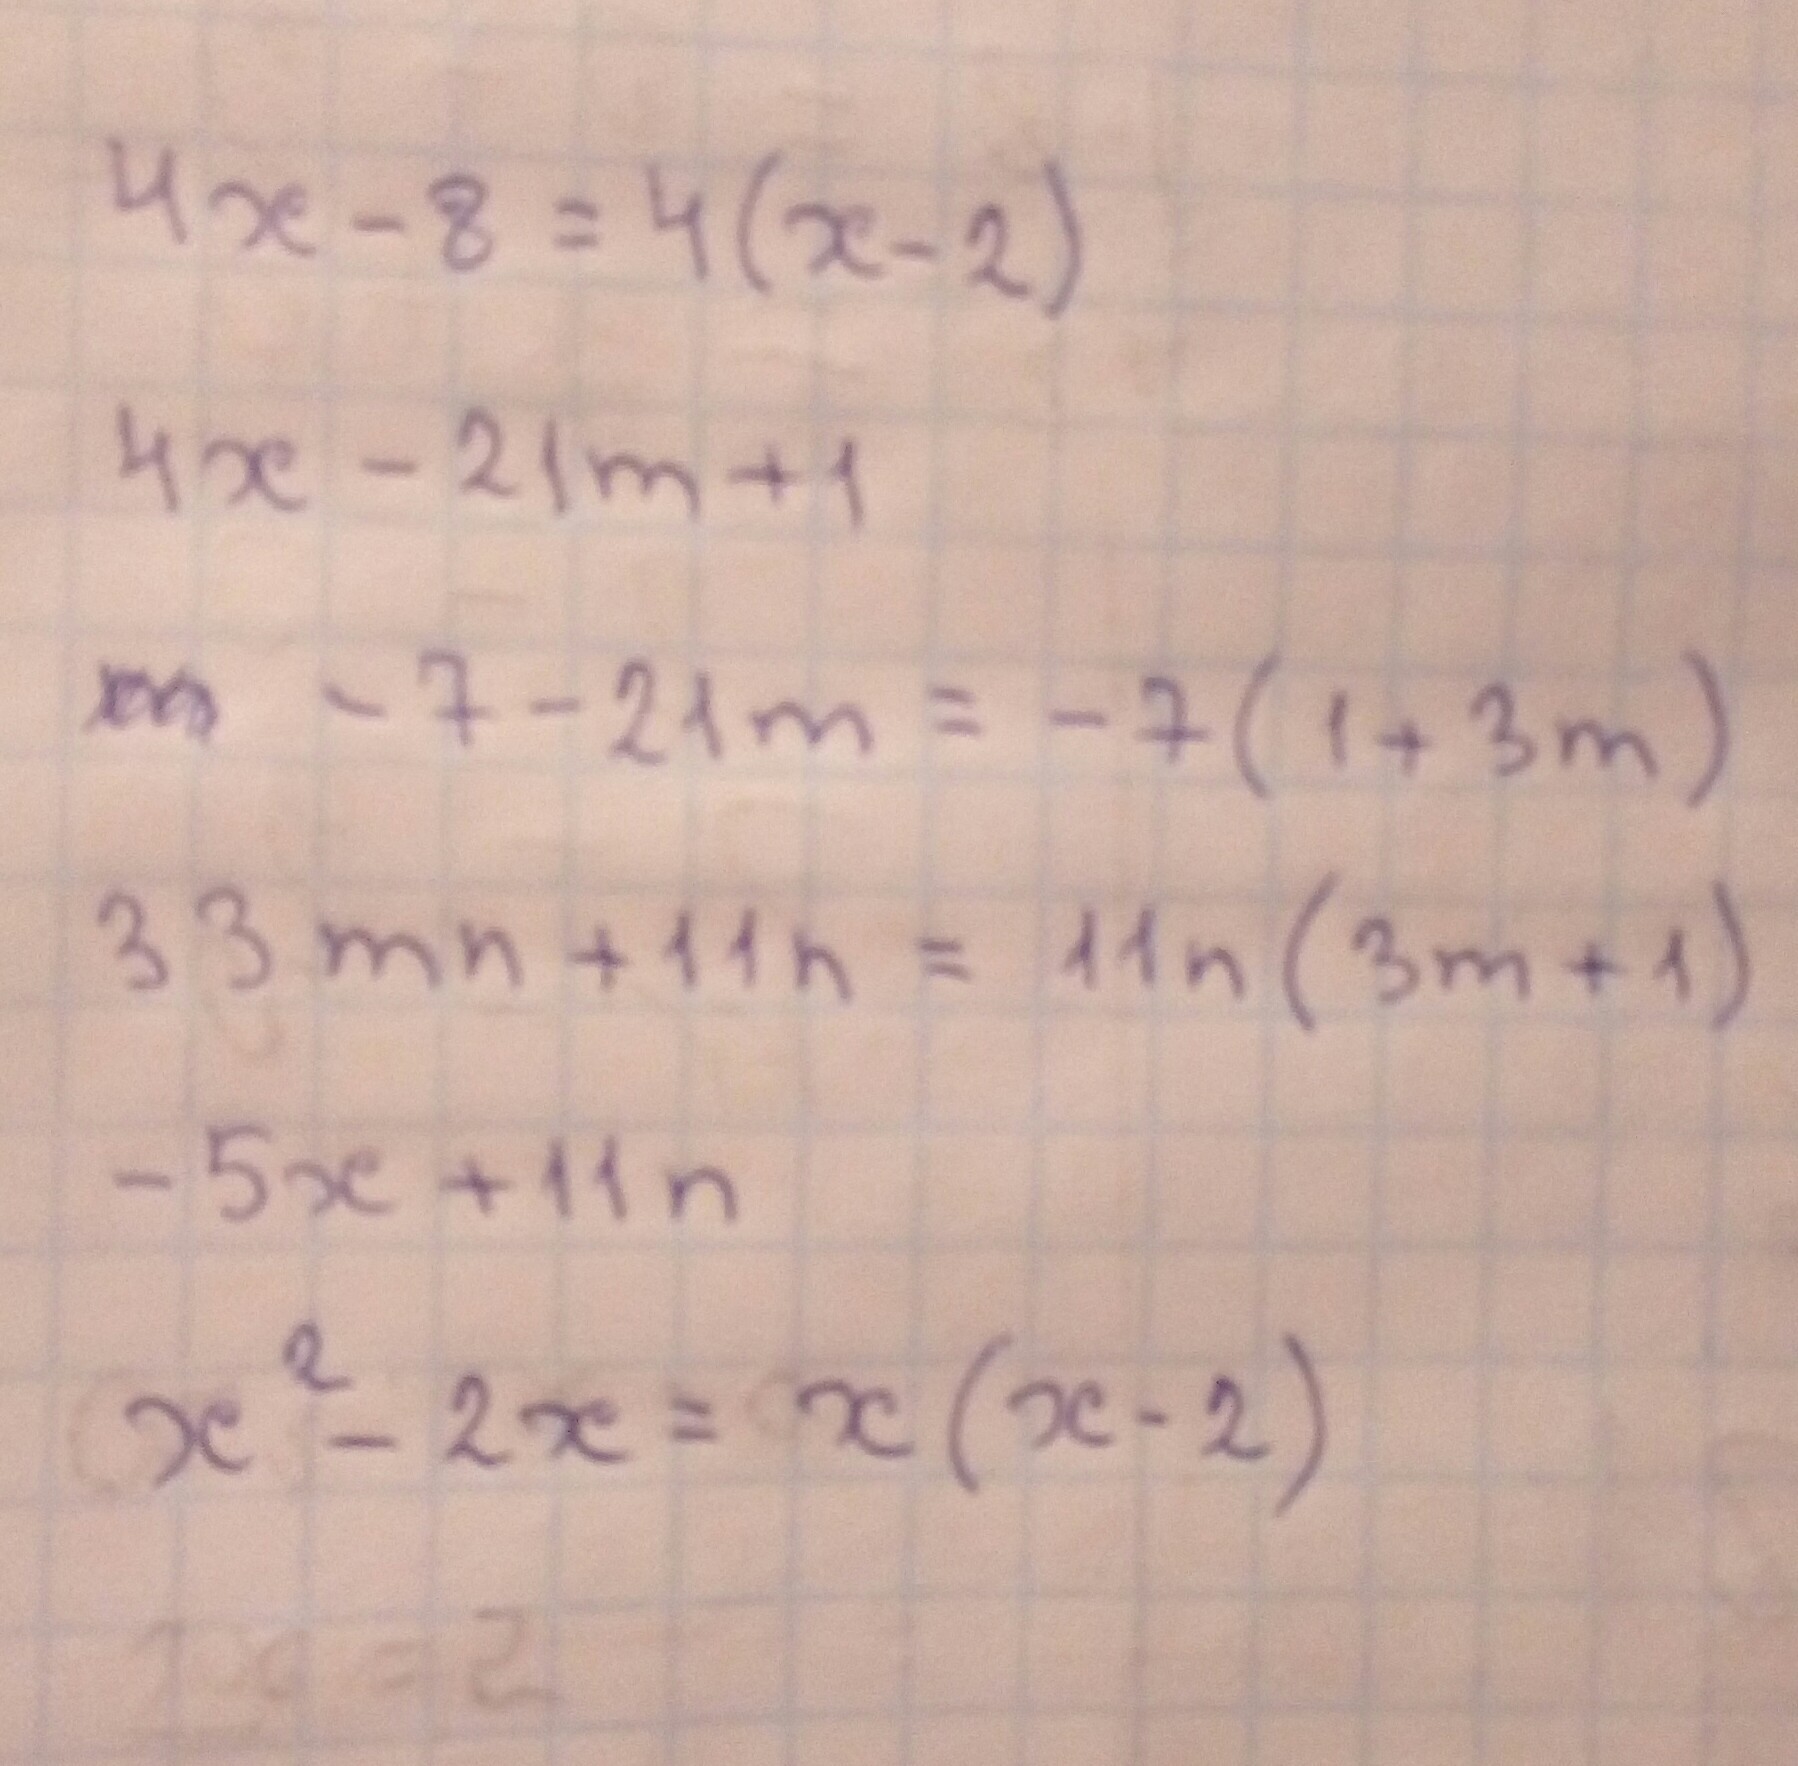 4x - 8 = 4(x - 2)
4x - 21m + 1
- 7 - 21m = - 7(1 + 3m)
33mn + 11n = 11n(3m + 1)
- 5x + 11n
x² - 2x = x(x - 2)